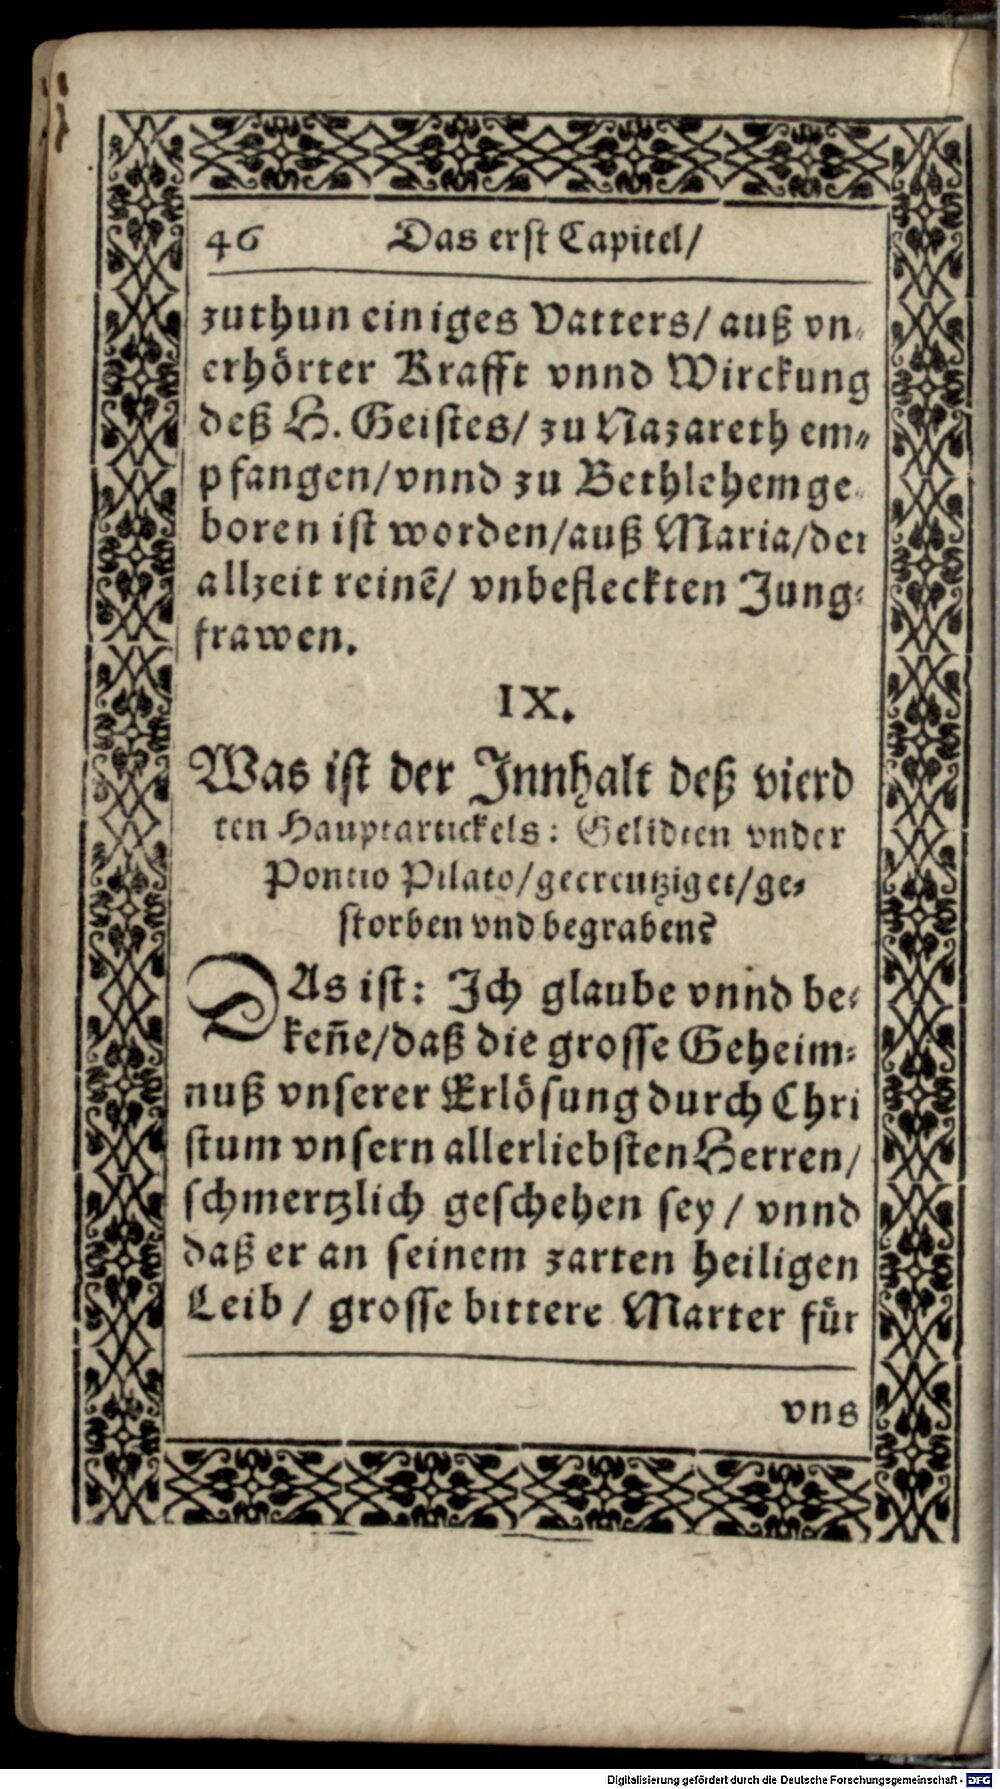 46 Das erst Capitel/
zuthun einiges Vatters/ auß vn-
erhörter Krafft vnnd Wirckung
deß H. Geistes/ zu Nazareth em-
pfangen/ vnnd zu Bethlehem ge-
boren ist worden/ auß Maria/ der
allzeit reinē/ vnbefleckten Jung-
frawen.
IX.
Was ist der Innhalt deß vierd
ten Hauptartickels: Gelidten vnder
Pontio Pilato/ gecreutziget/ ge-
storben vnd begraben?
DAs ist: Ich glaube vnnd be-
keñe/ daß die grosse Geheim-
nuß vnserer Erlösung durch Chri
stum vnsern allerliebsten Herren/
schmertzlich geschehen sey/ vnnd
daß er an seinem zarten heiligen
Leib/ grosse bittere Marter für
vns
Digitalisierung gefördert durch die Deutsche Forschungsgemeinschaft - DFG